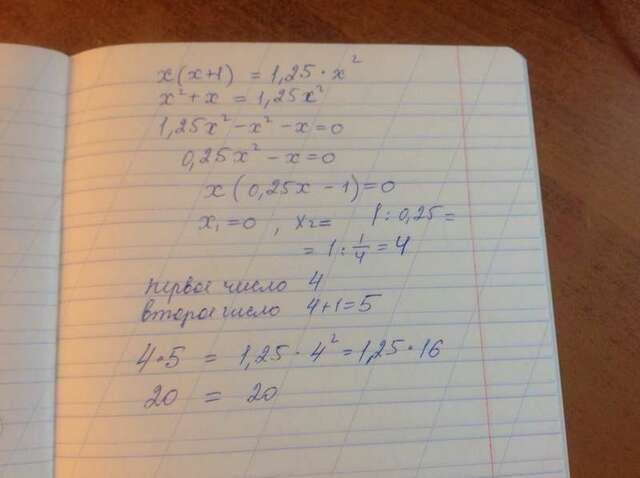 x(x+1) = 1,25 · x²
x² + x = 1,25x²
1,25x² - x² - x = 0
0,25x² - x = 0
x(0,25x - 1) = 0
x₁ = 0 , x₂ = 1 : 0,25 =
= 1 : 1/4 = 4
первое число 4
второе число 4+1=5
4 · 5 = 1,25 · 4² = 1,25 · 16
20 = 20